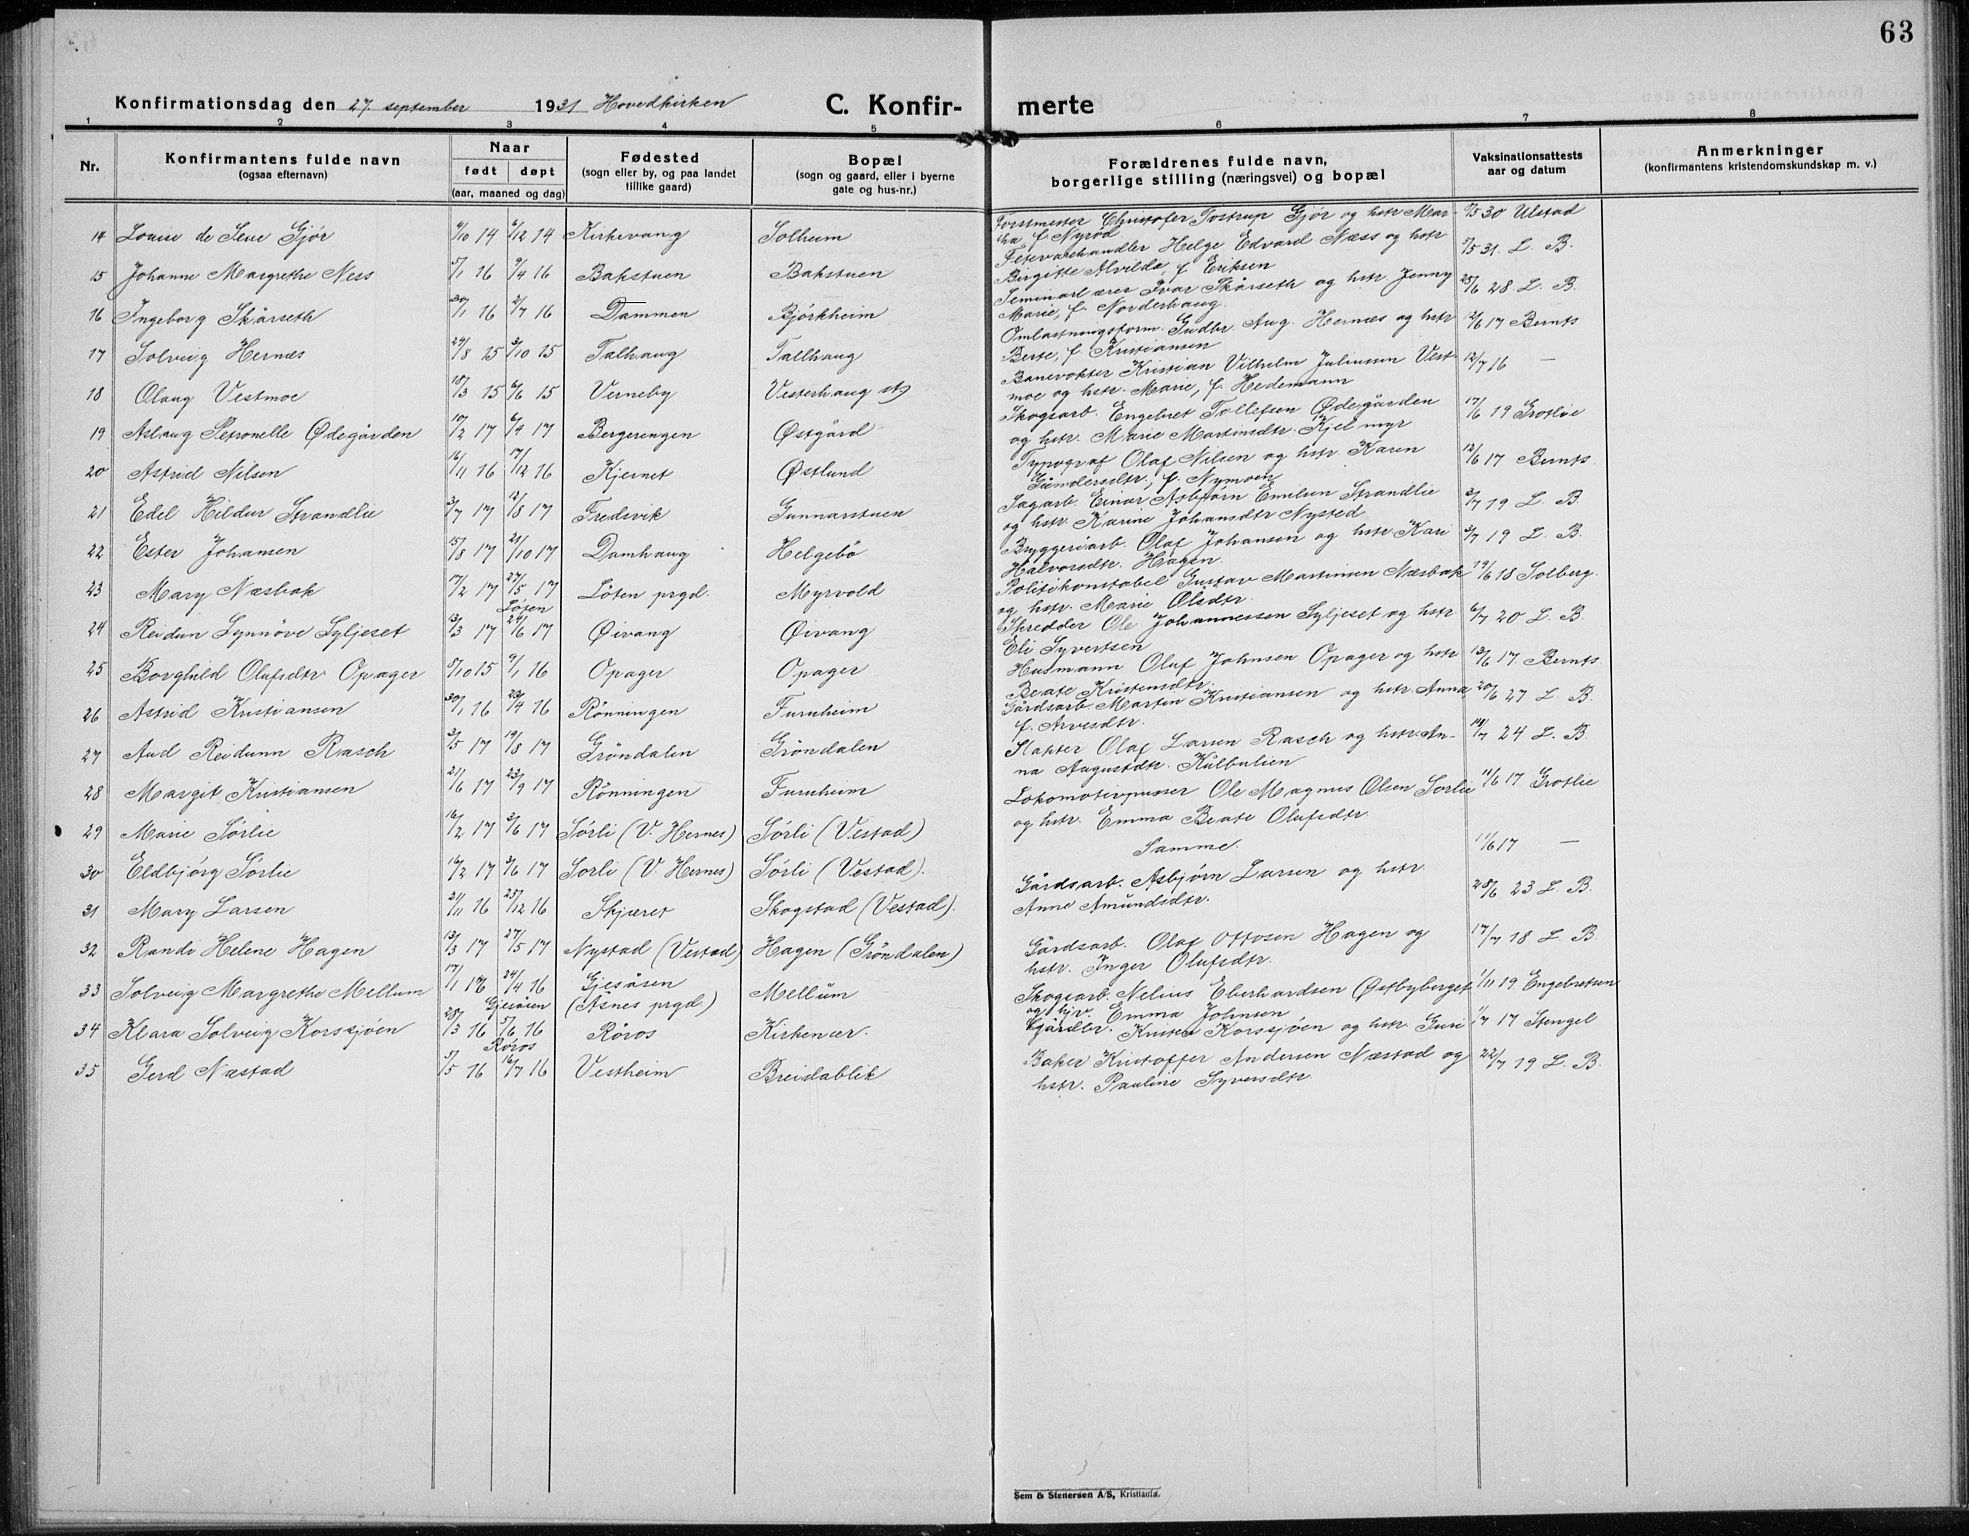 63
Konfirmationsdag den 27. september 1931 Hovedkirken C. Konfir- merte
1 2 3 4 5 6 7 8
Nr. Konfirmantens fulde navn (ogsaa efternavn) Naar født døpt (aar, maaned og dag) Fødested (sogn eller by, og paa landet tillike gaard) Bopæl (sogn og gaard, eller i byerne gate og hus-nr.) Forældrenes fulde navn, borgerlige stilling (næringsvei) og bopæl Vaksinationsattests aar og datum Anmerkninger (konfirmantens kristendomskundskap m. v.)
14 Louise de Seue Gjør 4/10 14 6/12 14 Kirkevang Solheim Forstmester Christofer Tostrup Gjør og hstr Mar- tha, f. Nyrød 7/5 30 Ulstad
15 Johanne Margrethe Ness 5/1 16 9/4 16 Bakstuen Bakstuen Fetevarehandler Helge Edvard Næss og hstr Birgitte Alvilde, f. Eriksen 7/5 31. L. B.
16 Ingeborg Skårseth 30/1 16 2/7 16 Dammen Björkheim Seminarlærer Ivar Skårseth og hstr Jenny Marie, f. Norderhaug. 25/6 28 L. B.
17 Solveig Hernes 24/8 15 3/10 15 Talhaug Tallhaug Omlastningsform. Gudbr. Aug. Hernæs og hstr Berte, f. Kristiansen 2/6 17 Bernts
18 Olaug Vestmoe 18/3 15 6/6 15 Verneby Vesterhaug st. Banevokter Kristian Vilhelm Juliussen Vest- moe og hstr. Marie, f. Hedemann 12/7 16 —
19 Aslaug Petronelle Ødegården 10/2 17 6/4 17 Bergerengen Østgård Skogsarb. Engebret Tollefsen Ødegården og hstr. Marie Martinsdtr. Kjelmyr 17/6 19 Grotlie
20 Astrid Nilsen 16/11 16 17/12 16 Kjernet Østlund Typograf Olaf Nilsen og hstr. Karen Gundersdtr., f. Nymoen 12/6 17 Bernts.
21 Edel Hildur Strandlie 3/7 17 12/8 17 Fredsvik Gunnarstuen Sagarb. Einar Asbjørn Emilsen Strandlie og hstr. Karine Johansdtr Nysted 3/7 19 L. B
22 Ester Johansen 15/8 17 21/10 17 Damhaug Helgebö Bryggeriarb. Olaf Johansen og hstr Kari Halvorsdtr. Hagen. 3/7 19 L. B.
23 Mary Næsbak 17/2 17 27/5 17 Löten Löten prgd. Myrvold Politikonstabel Gustav Martinsen Næsbak og hstr. Marie Olsdtr. 17/6 18 Solberg.
24 Reidun Synnöve Syljeset 13/3 17 24/6 17 Øivang Øivang Skredder Ole Johannessen Syljeset og hstr Eli Syvertsen 6/7 20 L. B.
25 Borghild Olufsdtr Opager 5/10 15 9/1 16 Opager Opager Husmann Oluf Johnsen Opager og hstr Beate Kristensdtr. 13/6 17. Bernts.
26 Astrid Kristiansen 30/1 16 23/4 16 Rönningen Furuheim Gårdsarb. Martin Kristiansen og hstr. Anna, f. Arvesdtr. 20/6 27 L. B.
27 Aud Reidunn Rasch 3/5 17 19/8 17 Gröndalen Gröndalen Slakter Olaf Larsen Rasch og hstr An- na Augustdtr. Kulbulien 14/7 24 L. B.
28 Margit Kristiansen 21/6 17 23/9 17 Rönningen Furuheim
29 Marie Sörlie 16/2 17 3/6 17 Sörli (V. Hernes) Sörli (Vestad) Lokomotivpusser Ole Magnus Olsen Sorlie og hstr. Emma Beate Olufsdtr 11/6 17 Grotlie
30 Eldbjörg Sörlie 16/2 17 3/6 17 Sorli (V. Hernes) Sörli (Vestad). Samme. 11/6 17 —
31 Mary Larsen 21/11 16 25/12 16 Skjæret Skogstad (Vestad). Gårdsarb. Asbjørn Larsen og hstr Anne Amundsdtr. 28/6 23 L. B.
32 Randi Helene Hagen 13/3 17 27/5 17 Nystad (Vestad) Hagen (Gröndalen) Gårdsarb. Olaf Ottosen Hagen og hstr. Inger Olufsdtr. 17/7 18 L. B
33 Solveig Margrethe Mellum 17/1 16 24/4 16 Gjesåsen Gjesåsen (Åsnes prgd) Mellum Skogsarb. Nelius Eberhardsen Østbyberget og hstr. Emma Johnsen 1/11 19. Engebretsen
34 Klara Solveig Korssjöen 28/3 16 5/6 16 Röros Röros Kirkenær. Gårdbr. Kristen Korssjöen og hstr. Guri 1/7 17 Stengel
35 Gerd Næstad 5/5 16 16/7 16 Vestheim Breidablik Baker Kristoffer Andersen Næstad og hstr. Pauline Syversdtr. 22/7 19 L. B.
Sem & Stenersen A/S, Kristiania.